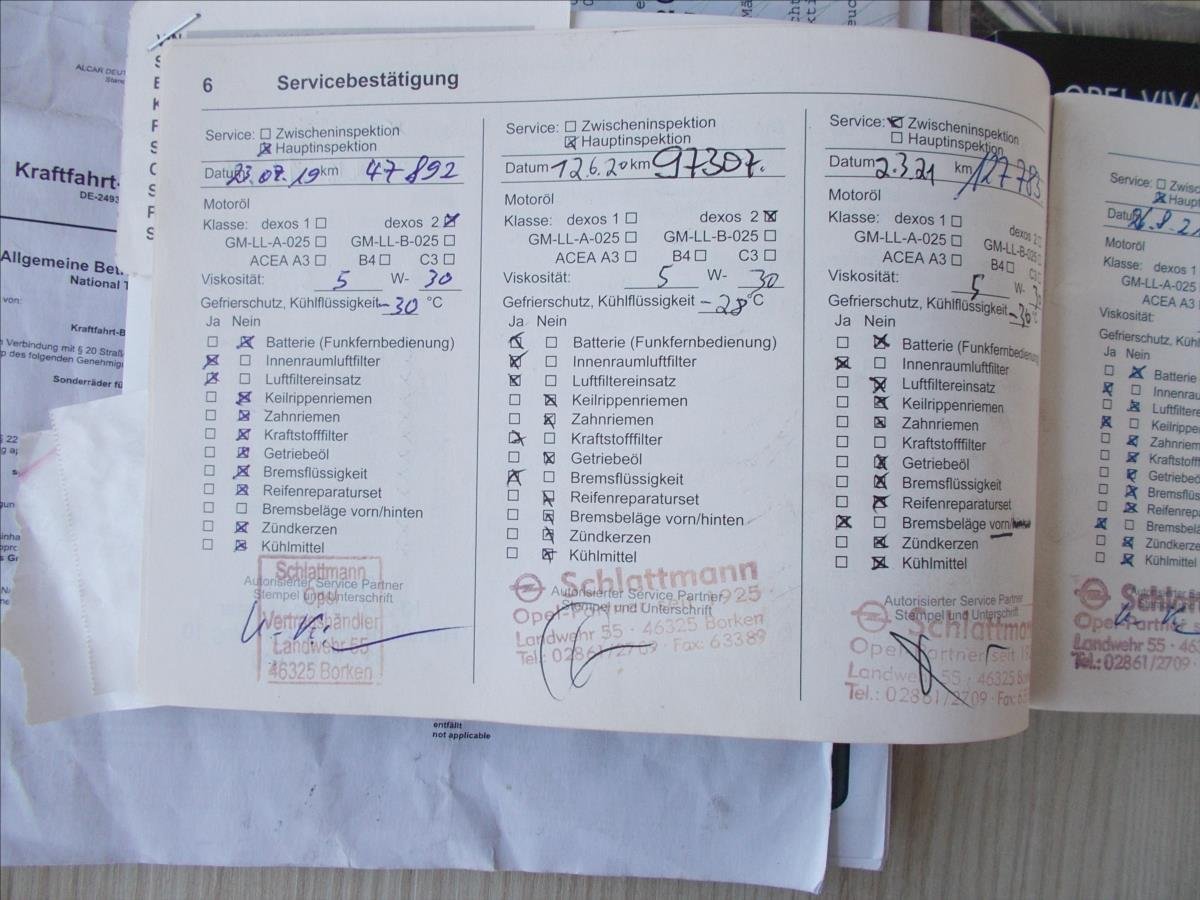 ALCAR DEUT
Kraftfahrt-
DE-2493
Allgemeine Bet
National T
von:
Kraftfahrt-B
Verbindung mit § 20 Straß
des folgenden Genehmig
Sonderräder fü
§ 22
entfällt
not applicable
OPEL VIVA
6 Servicebestätigung
Service: ☐ Zwischeninspektion
☒ Hauptinspektion
Datum 23.07.19 km 47892
Motoröl
Klasse: dexos 1 ☐ dexos 2 ☒
GM-LL-A-025 ☐ GM-LL-B-025 ☐
ACEA A3 ☐ B4 ☐ C3 ☐
Viskosität: 5 W- 30
Gefrierschutz, Kühlflüssigkeit -30 °C
Ja Nein
☐ ☒ Batterie (Funkfernbedienung)
☒ ☐ Innenraumluftfilter
☒ ☐ Luftfiltereinsatz
☐ ☒ Keilrippenriemen
☐ ☒ Zahnriemen
☐ ☒ Kraftstofffilter
☐ ☒ Getriebeöl
☐ ☒ Bremsflüssigkeit
☐ ☒ Reifenreparaturset
☐ ☐ Bremsbeläge vorn/hinten
☐ ☒ Zündkerzen
☐ ☒ Kühlmittel
Autorisierter Service Partner
Stempel und Unterschrift
Schlattmann
Opel
Vertragshändler
Landwehr 55
46325 Borken
Service: ☐ Zwischeninspektion
☒ Hauptinspektion
Datum 12.6.20 km 97307.
Motoröl
Klasse: dexos 1 ☐ dexos 2 ☒
GM-LL-A-025 ☐ GM-LL-B-025 ☐
ACEA A3 ☐ B4 ☐ C3 ☐
Viskosität: 5 W- 30
Gefrierschutz, Kühlflüssigkeit -28 °C
Ja Nein
☒ ☐ Batterie (Funkfernbedienung)
☒ ☐ Innenraumluftfilter
☒ ☐ Luftfiltereinsatz
☐ ☒ Keilrippenriemen
☐ ☒ Zahnriemen
☒ ☐ Kraftstofffilter
☐ ☒ Getriebeöl
☒ ☐ Bremsflüssigkeit
☐ ☒ Reifenreparaturset
☐ ☒ Bremsbeläge vorn/hinten
☐ ☒ Zündkerzen
☐ ☒ Kühlmittel
Autorisierter Service Partner
Stempel und Unterschrift
Schlattmann
Landwehr 55 · 46325 Borken
Tel.: 02861/2709 · Fax: 63389
Service: ☒ Zwischeninspektion
☐ Hauptinspektion
Datum 2.3.21 km 127783
Motoröl
Klasse: dexos 1 ☐ dexos 2 ☐
GM-LL-A-025 ☐ GM-LL-B-025 ☐
ACEA A3 ☐ B4 ☐ C3 ☐
Viskosität: 5 W-
Gefrierschutz, Kühlflüssigkeit -30 °C
Ja Nein
☐ ☒ Batterie (Funkfernbedienung
☒ ☐ Innenraumluftfilter
☐ ☒ Luftfiltereinsatz
☐ ☒ Keilrippenriemen
☐ ☒ Zahnriemen
☐ ☐ Kraftstofffilter
☐ ☒ Getriebeöl
☐ ☒ Bremsflüssigkeit
☐ ☒ Reifenreparaturset
☒ ☐ Bremsbeläge vorn/
☐ ☒ Zündkerzen
☐ ☒ Kühlmittel
Autorisierter Service Partner
Stempel und Unterschrift
Schlattmann
Landwehr 55 · 46325 Bor
Tel.: 02861/2709 · Fax: 63
Service: ☐ Zwisc
☒ Haupt
Datum 26.8.21
Motoröl
Klasse: dexos 1
GM-LL-A-025
ACEA A3
Viskosität:
Gefrierschutz, Kühlflüssigk
Ja Nein
☐ ☒ Batterie
☒ ☐ Innenrau
☐ ☒ Luftfilter
☒ ☐ Keilrippen
☐ ☒ Zahnriem
☐ ☒ Kraftstoff
☐ ☒ Getriebeö
☐ ☒ Bremsflüs
☐ ☒ Reifenrep
☒ ☐ Bremsbel
☐ ☒ Zündkerz
☐ ☒ Kühlmitte
Landwehr 55 ·
Tel.: 02861/2709